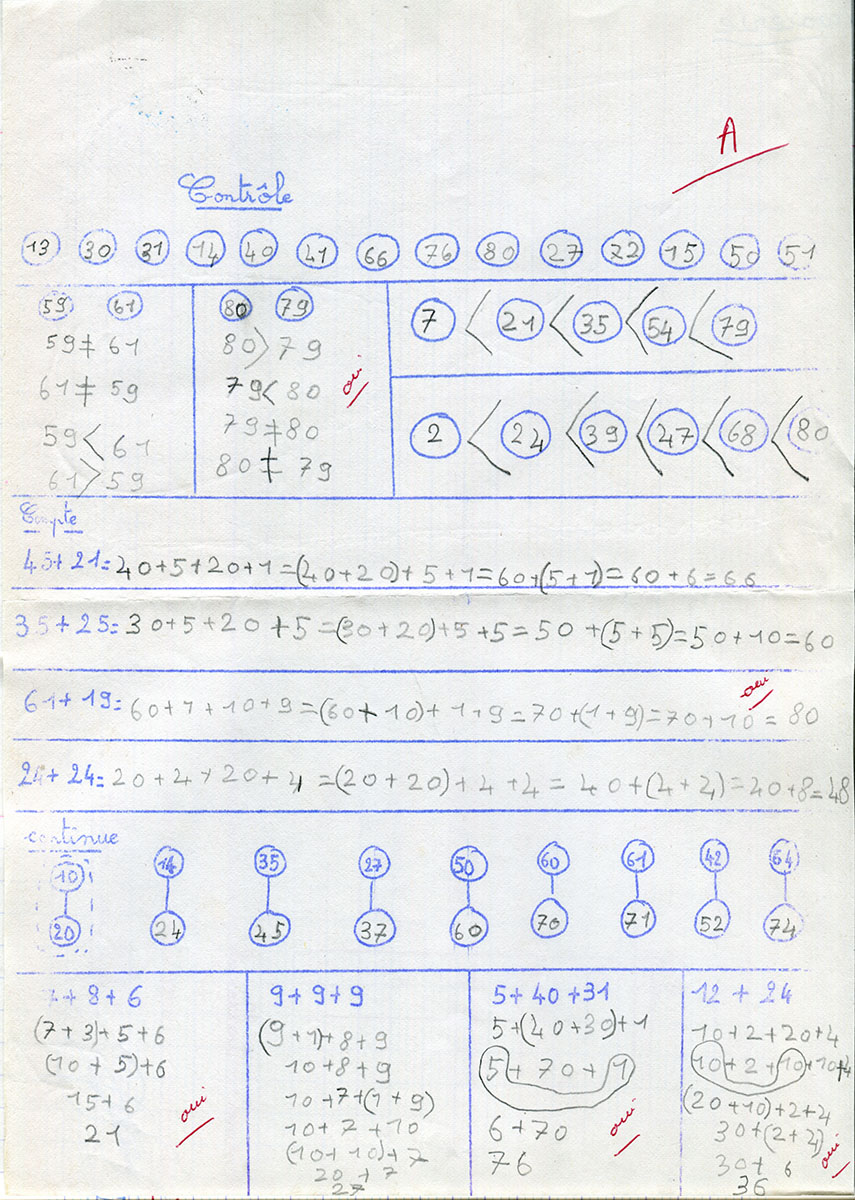 A
Contrôle
13 30 31 14 40 41 66 76 80 27 72 15 50 51
59 61
59 ≠ 61
61 ≠ 59
59 < 61
61 > 59
80 79
80 > 79
79 < 80
oui
79 ≠ 80
80 ≠ 79
7 < 21 < 35 < 54 < 79
2 < 24 < 39 < 47 < 68 < 80
Compte
45+21=40+5+20+1=(40+20)+5+1=60+(5+1)=60+6=66
35+25=30+5+20+5=(30+20)+5+5=50+(5+5)=50+10=60
oui
61+19=60+1+10+9=(60+10)+1+9=70+(1+9)=70+10=80
24+24=20+4+20+4=(20+20)+4+4=40+(4+4)=40+8=48
continue
10 14 35 27 50 60 61 42 64
20 24 45 37 60 70 71 52 74
7+8+6
(7+3)+5+6
(10+5)+6
15+6
21
oui
9+9+9
(9+1)+8+9
10+8+9
10+7+(1+9)
10+7+10
(10+10)+7
20+7
27
5+40+31
5+(40+30)+1
5+70+1
6+70
76
oui
12+24
10+2+20+4
10+2+10+10+4
(20+10)+2+4
30+(2+4)
30+6
36
oui